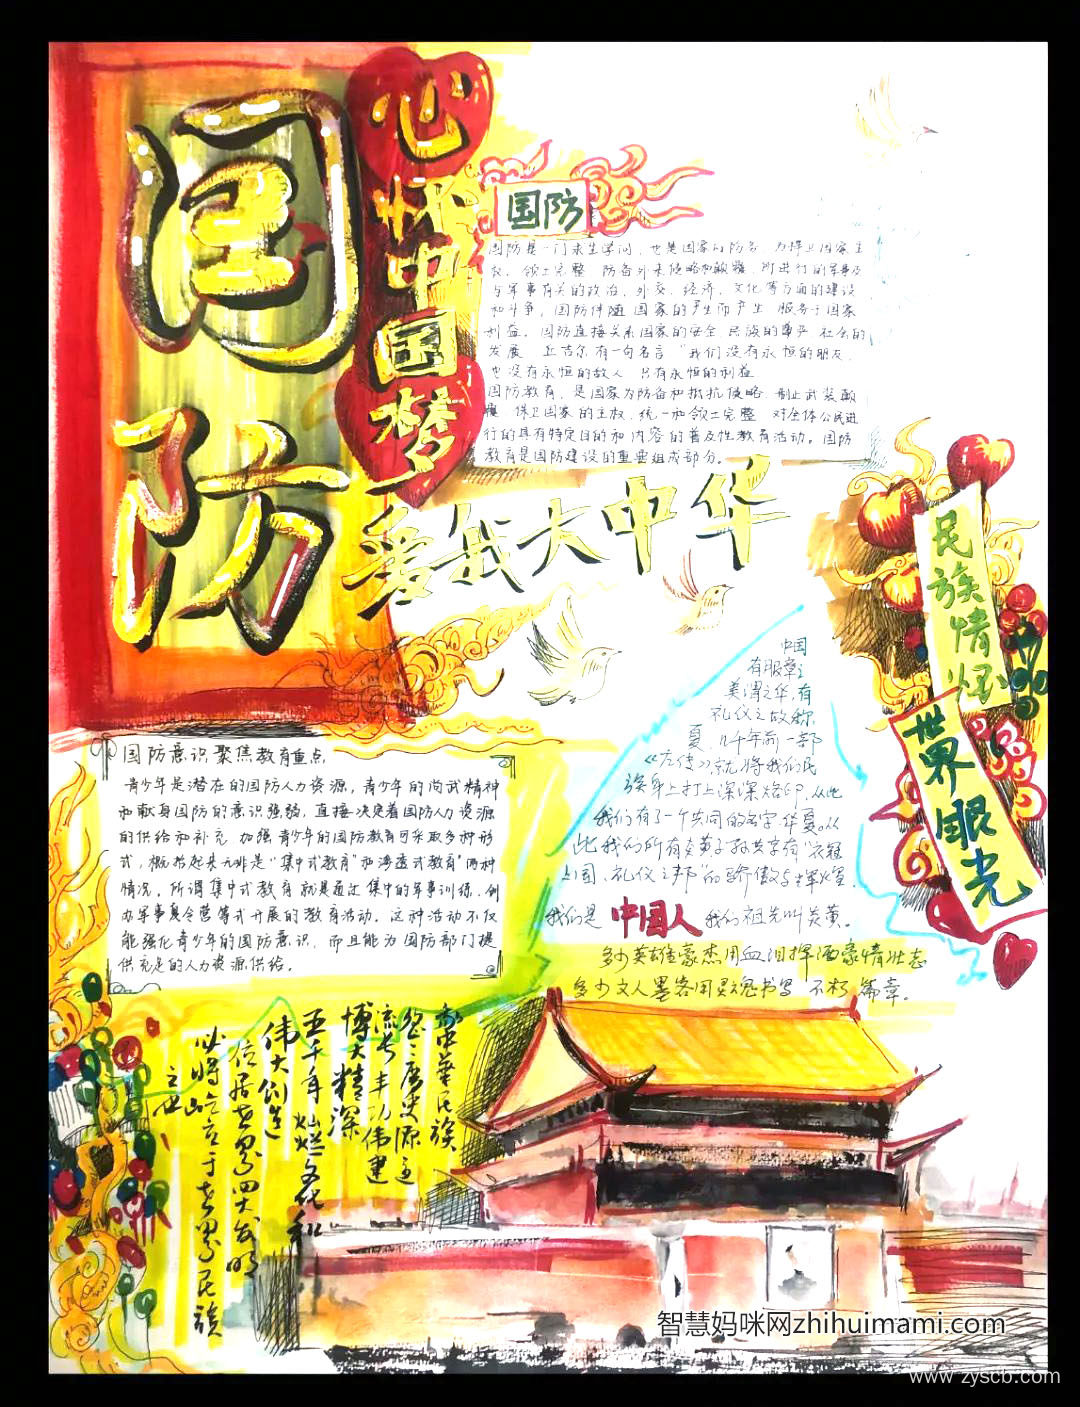 国防
心怀中国梦
爱我大中华
国防
国防是一门求生学问，也是国家的防务，为捍卫国家主
权、领土完整，防备外来侵略和颠覆，所进行的军事及
与军事有关的政治、外交、经济、文化等方面的建设
和斗争。国防伴随国家的产生而产生，服务于国家
利益。国防直接关系国家的安全，民族的尊严，社会的
发展。丘吉尔有一句名言：“我们没有永恒的朋友，
也没有永恒的敌人，只有永恒的利益
国防教育，是国家为防备和抵抗侵略，制止武装颠
覆，保卫国家的主权，统一和领土完整，对全体公民进
行的具有特定目的和内容的普及性教育活动。国防
教育是国防建设的重要组成部分。
民族情怀
世界眼光
中国
有服章之
美谓之华，有
礼仪之故称
夏，几千年前一部
《左传》，就将我们民
族身上打上深深烙印，从此
我们有了一个共同的名字，华夏。从
此我们所有炎黄子孙共享有“衣冠
上国、礼仪之邦”的骄傲与辉煌。
我们是 中国人 我们祖先叫炎黄。
多少英雄豪杰用血泪挥洒豪情壮志
多少文人墨客用灵魂书写 不朽篇章。
国防意识聚焦教育重点
青少年是潜在的国防人力资源，青少年的尚武精神
和献身国防的意识强弱，直接决定着国防人力资源
的供给和补充，加强青少年的国防教育可采取多种形
式，概括起来无非是“集中式教育”和渗透式教育”两种
情况。所谓集中式教育就是通过集中的军事训练，创
办军事夏令营等式开展的教育活动。这种活动不仅
能强化青少年的国防意识，而且能为国防部门提
供充足的人力资源供给。
中华民族
历史源
流长 丰功伟建
博大精深
五千年灿烂文化和
伟大创造
位居世界四大发明
必将屹立于世界民族
之世
智慧妈咪网zhihuimami.com
www.zyscb.com